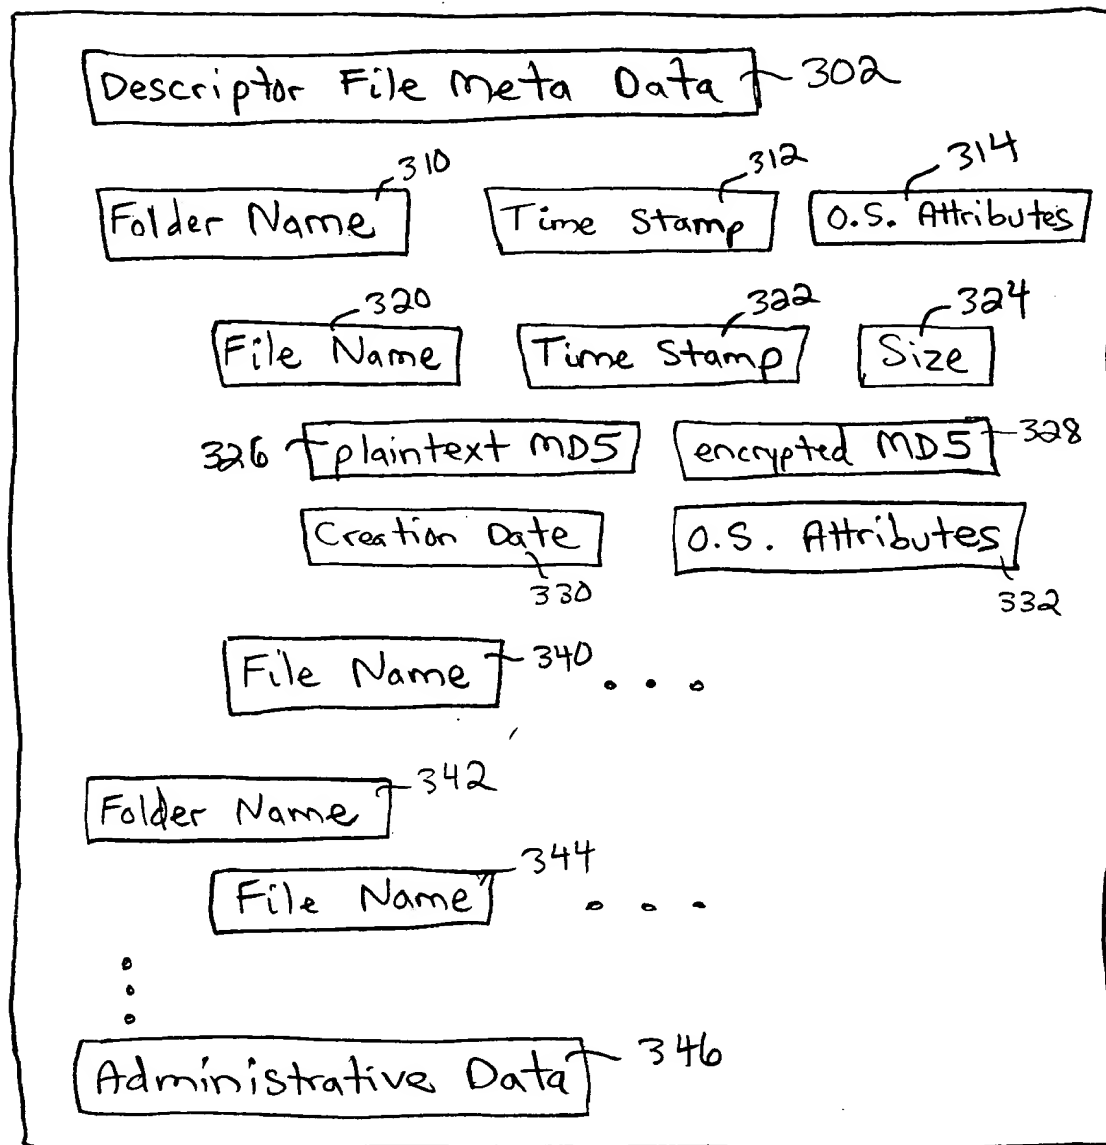 Descriptor File Meta Data 302
310 312 314
Folder Name Time Stamp O.S. Attributes
320 322 324
File Name Time Stamp Size
326 plaintext MD5 encrypted MD5 328
Creation Date O.S. Attributes
330 332
File Name 340 . . .
Folder Name 342
File Name 344 . . .
Administrative Data 346